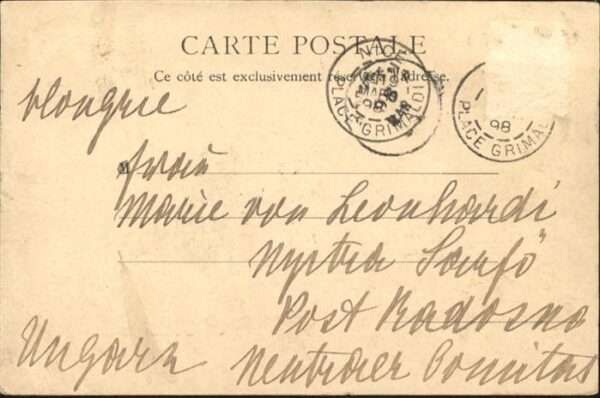 CARTE POSTALE
Ce côté est exclusivement réservé à l'adresse.
PLACE GRIMALDI
MARS
98
98
PLACE GRIMALDI
Hongrie
Frau
Marie von Leonhardi
Nyitra Sarfö
Post Radosna
Ungarn Neutraer Comitat